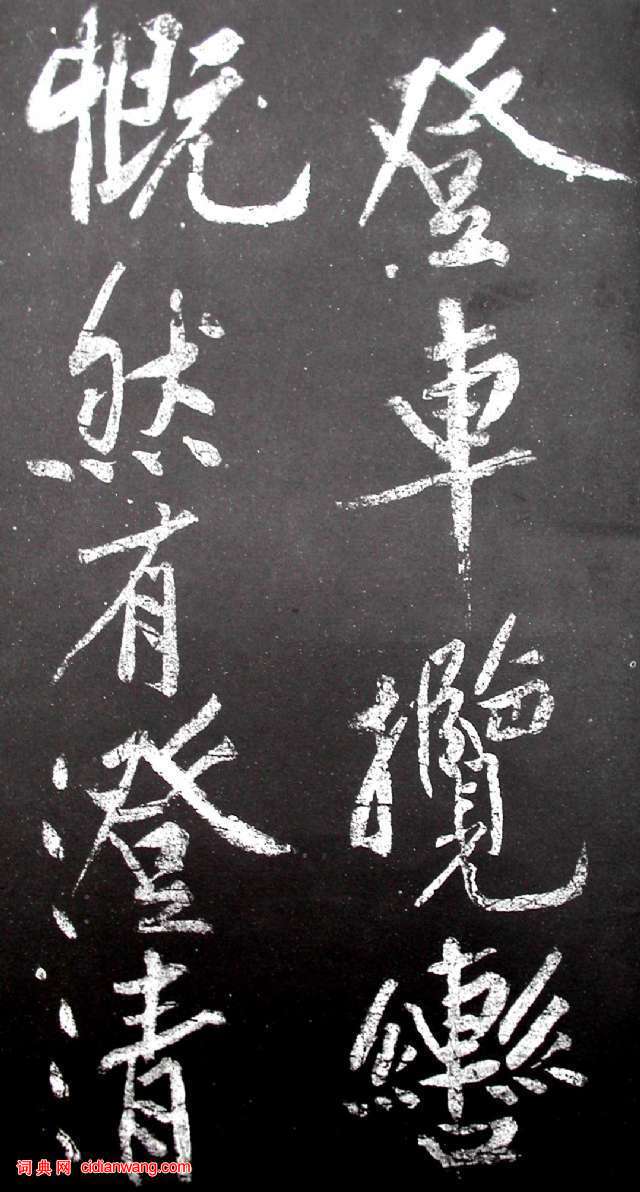 登車攬轡
慨然有澄清
词典网 cidianwang.com